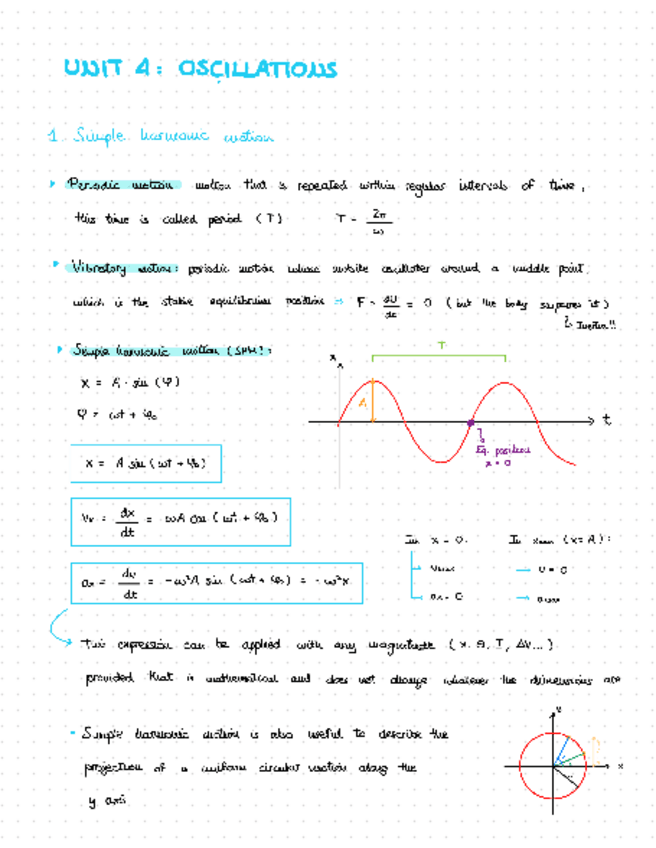 UNIT 4: OSCILLATIONS
1. Simple harmonic motion
Periodic motion motion that is repeated within regular intervals of time,
this time is called period (T) T = 2π/ω
Vibratory motion: periodic motion whose mobile oscillates around a middle point,
which is the stable equilibrium position ⇒ F = dU/dx = 0 (but the body surpasses it)
Inertia!!
Simple harmonic motion (SHM):
x = A · sin (φ)
φ = ωt + φ₀
x = A sin (ωt + φ₀)
vx = dx/dt = ωA cos (ωt + φ₀)
ax = dv/dt = -ω²A sin (ωt + φ₀) = -ω²x
x
T
A
t
Eq. position
x = 0
In x = 0:
vmax
ax = 0
In xmax (x = A):
v = 0
amax
This expression can be applied with any magnitude (x, θ, I, ΔV...)
provided that is mathematical and does not change whatever the dimensions are
- Simple harmonic motion is also useful to describe the
projection of a uniform circular motion along the
y axis
y
x